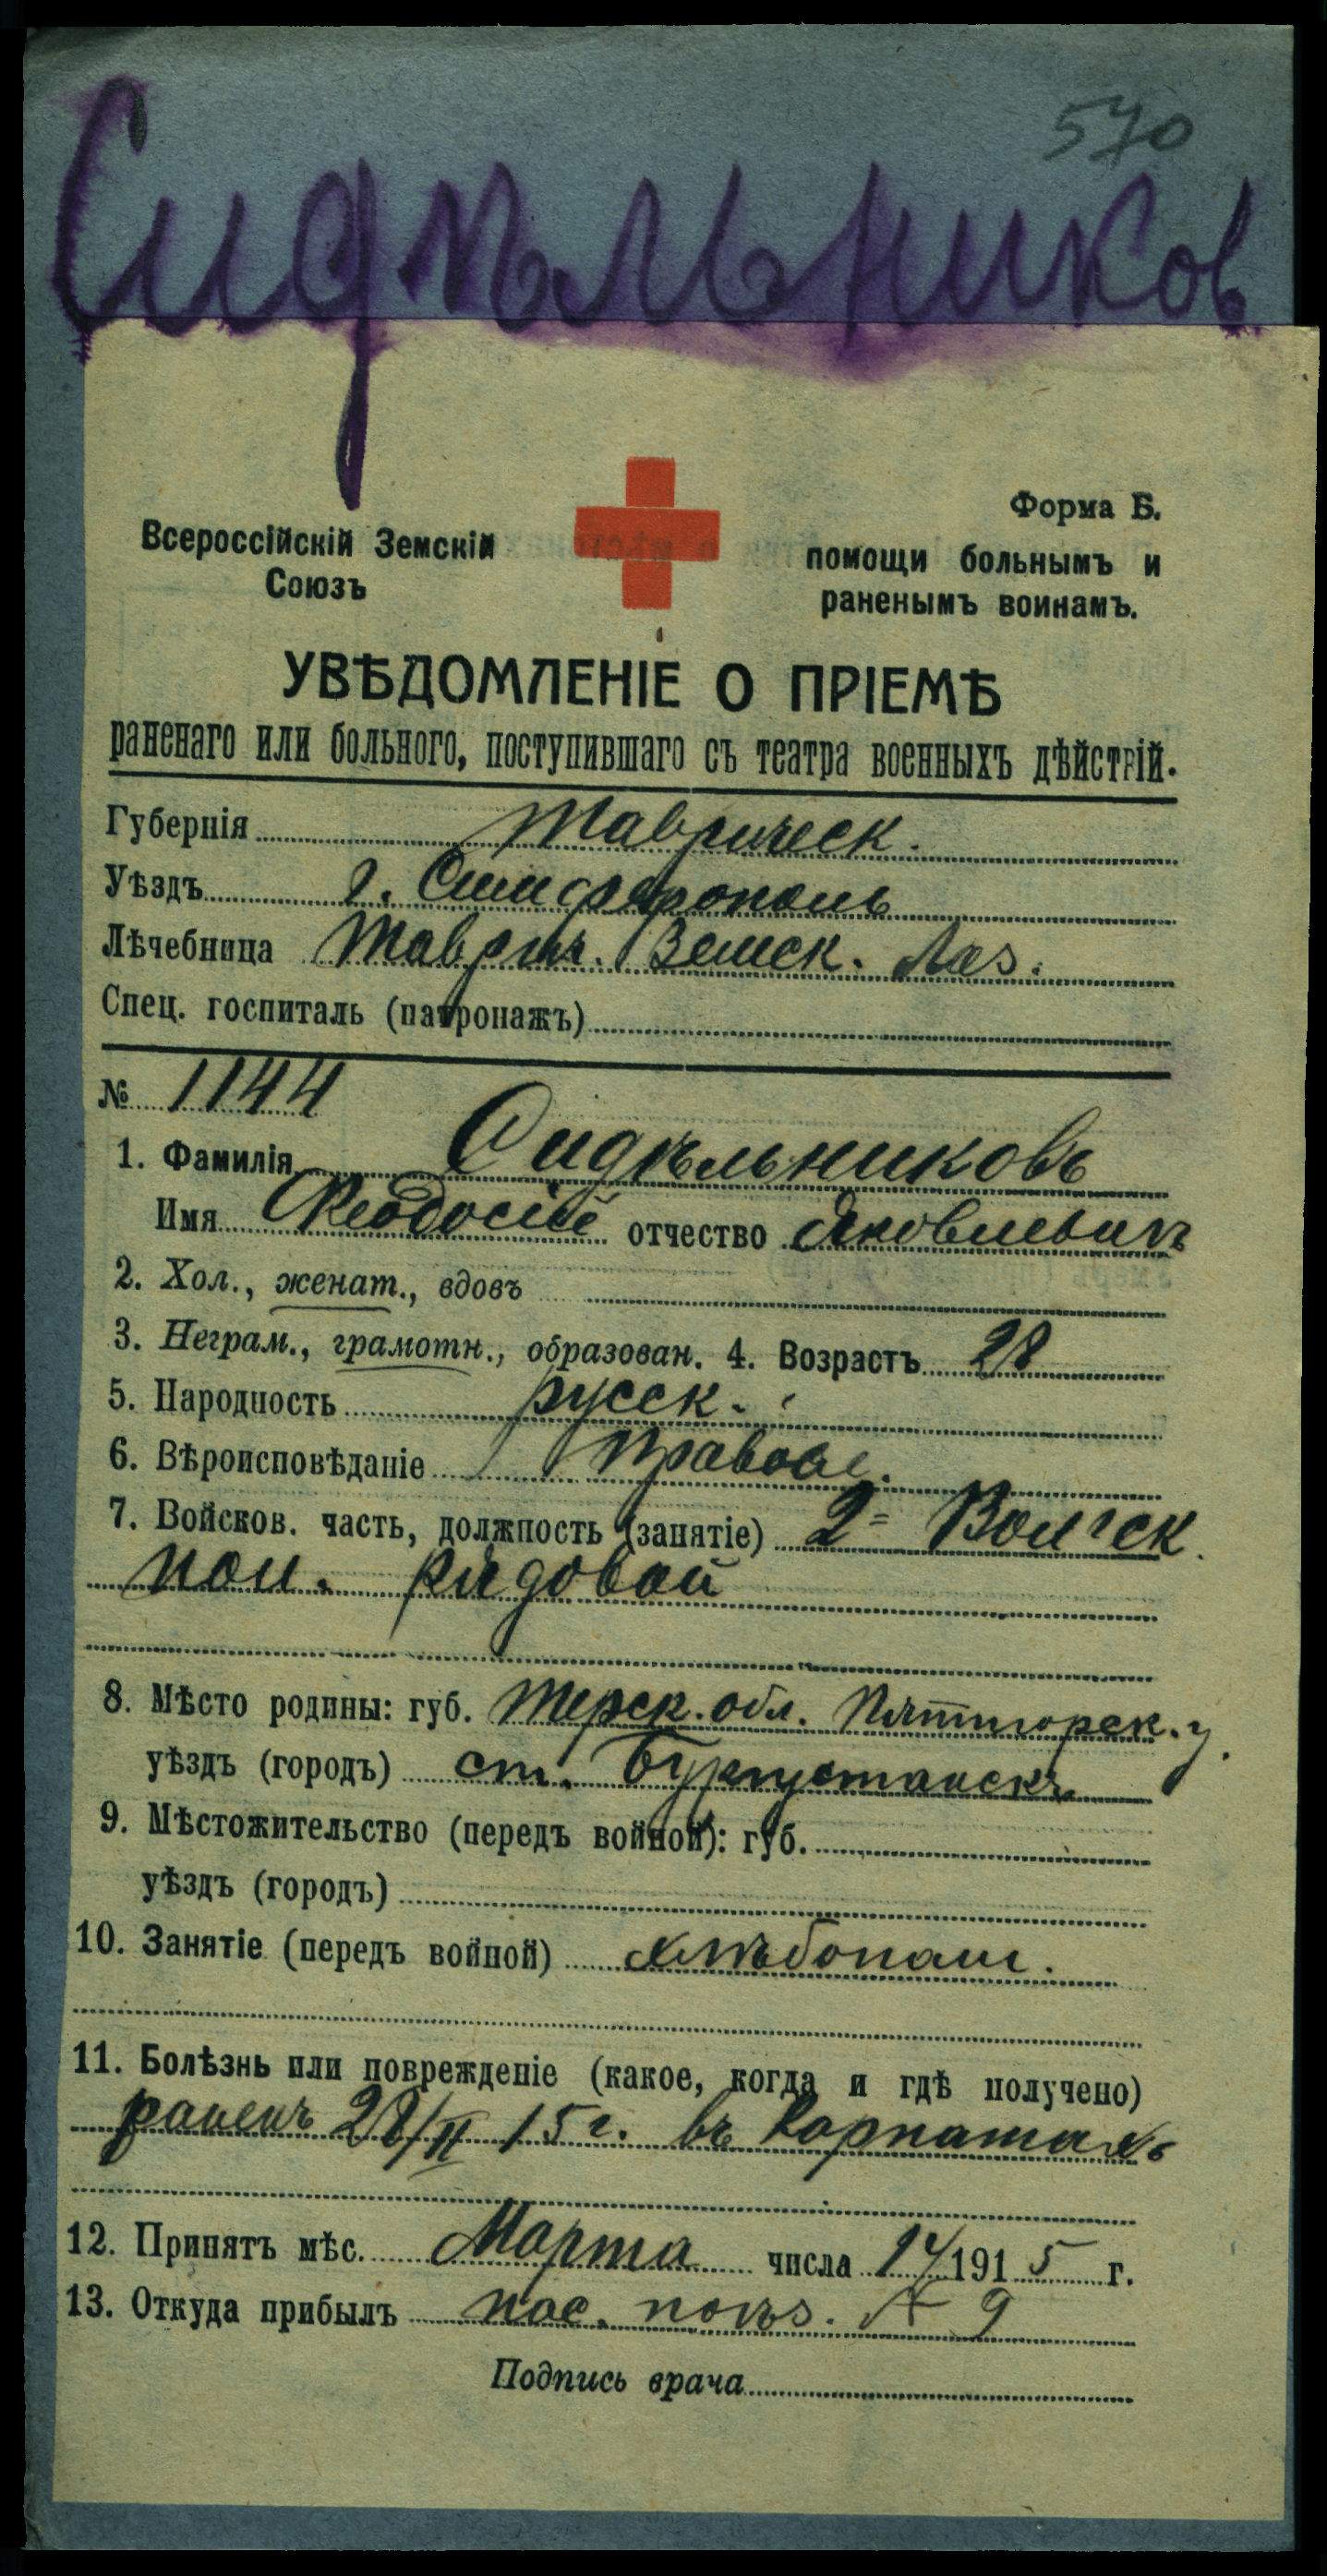 570
Сидѣльников
Форма Б.
Всероссійскій Земскій помощи больнымъ и
Союзъ раненымъ воинамъ.
УВѢДОМЛЕНІЕ О ПРІЕМѢ
раненаго или больного, поступившаго съ театра военныхъ дѣйствій.
Губернія Таврическ.
Уѣздъ г. Симферополь
Лѣчебница Таврич. Земск. Лаз.
Спец. госпиталь (патронажъ)
№ 1144
1. Фамилія Сидѣльниковъ
Имя Ѳеодосій отчество Яковлевич
2. Хол., женат., вдовъ
3. Неграм., грамотн., образован. 4. Возрастъ 28
5. Народность русск.
6. Вѣроисповѣданіе правосл.
7. Войсков. часть, должность (занятіе) 2= Волгск.
пол. рядовой
8. Мѣсто родины: губ. Терск. обл. Пятигорск. у.
уѣздъ (городъ) ст. Бургустанск.
9. Мѣстожительство (передъ войной): губ.
уѣздъ (городъ)
10. Занятіе (передъ войной) хлѣбопаш.
11. Болѣзнь или поврежденіе (какое, когда и гдѣ получено)
раненъ 28/II 15 г. въ Карпатахъ
12. Принятъ мѣс. Марта числа 14 1915 г.
13. Откуда прибылъ пос. поѣз. № 9
Подпись врача